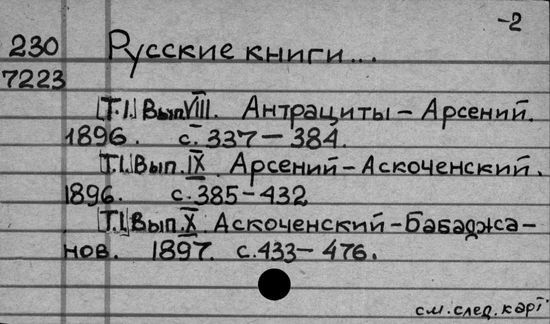 -2
230 Русские книги...
7223
[Т.I.] Вып. VIII. Антрациты - Арсений.
1896. с. 337 - 384.
[Т.I.] Вып. IX. Арсений - Аскоченский.
1896. с. 385-432
[Т.I.] Вып. X. Аскоченский - Бабаджа-
нов. 1897. с. 433 - 476.
см. след. карт.